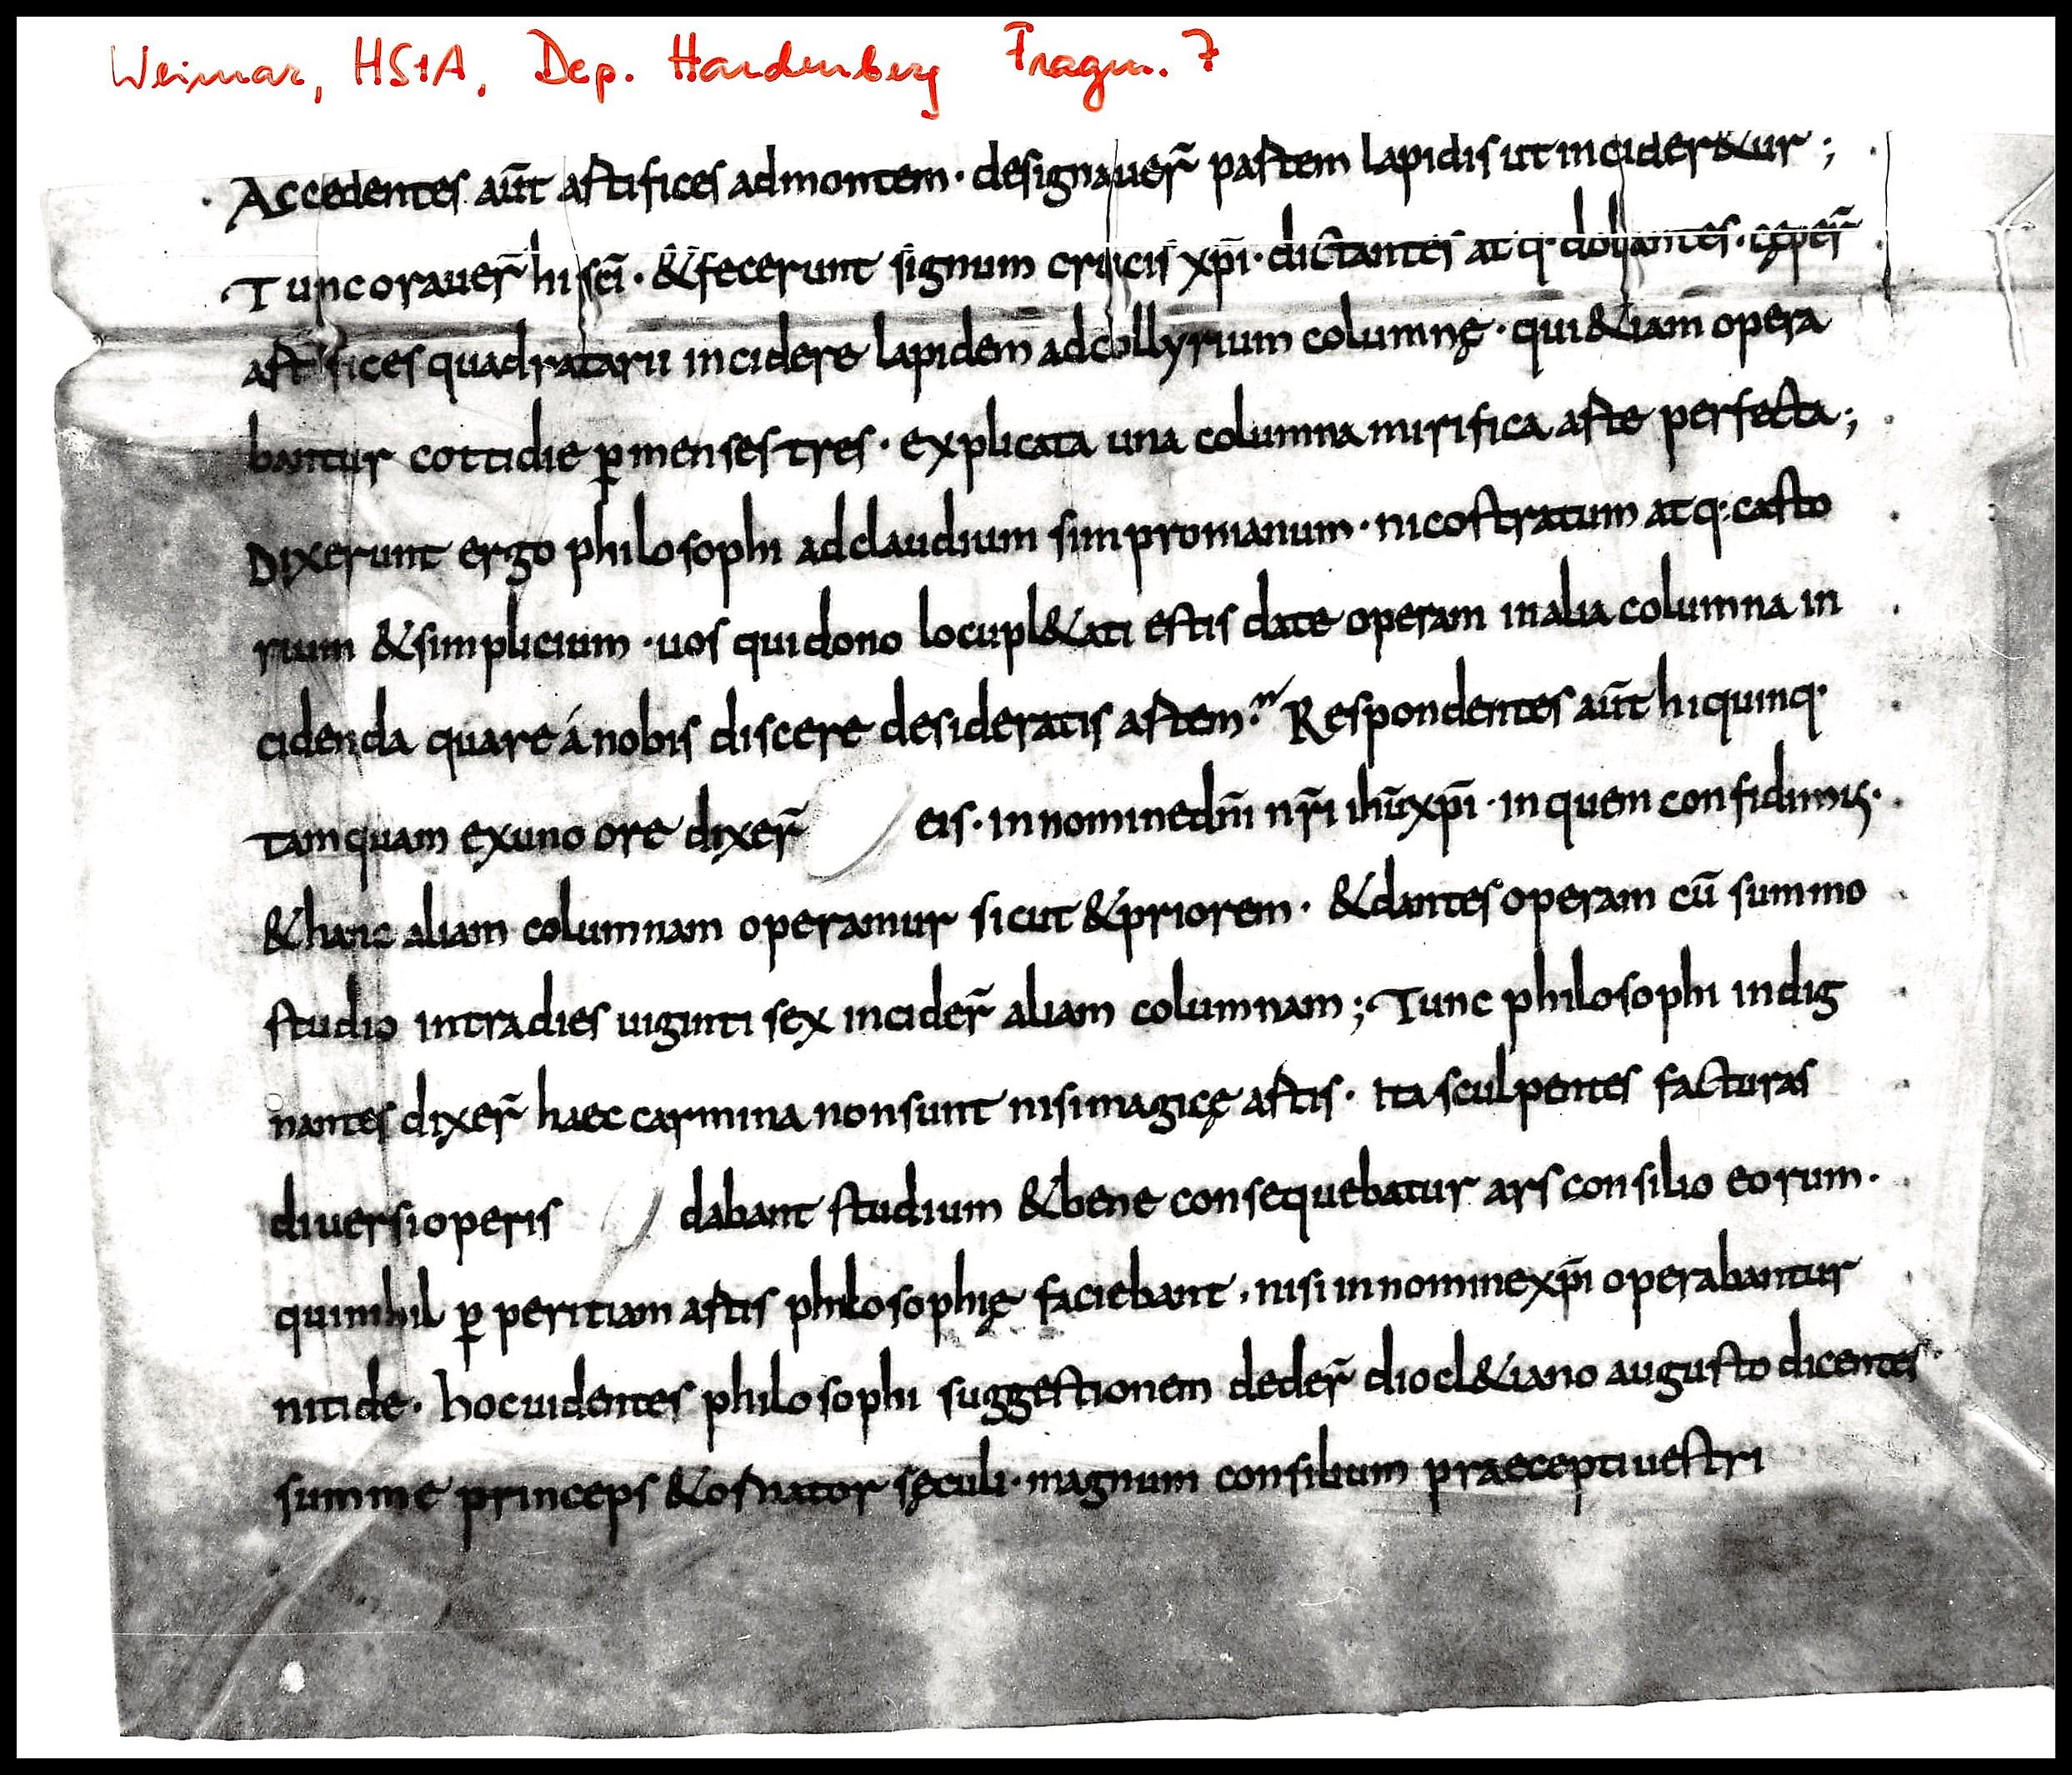 Weimar, HStA, Dep. Hardenberg Fragm. 7
Accedentes aūt artifices admontem · designauer̄ partem lapidis ut incider&ur ;
Tunc orauer̄ hi sc̄i · & fecerunt signum crucis xp̄i · dictantes atq· dolantes · cęper̄
artifices quadratarii incidere lapidem ad collyrium columnę · qui &iam opera
bantur cottidie ꝑ menses tres · explicata una columna mirifica arte perfecta ;
Dixerunt ergo philosophi ad claudium simpronianum · nicostratum atq· casto
rium & simplicium · uos qui dono locupl&ati estis date operam in alia columna in
cidenda quare á nobis discere desideratis artem. Respondentes aūt hi quinq·
tamquam ex uno ore dixer̄ eis · in nomine dn̄i nr̄i ihū xp̄i · in quem confidimus ·
& hanc aliam columnam operamur sicut & priorem · & dantes operam cū summo
studio intra dies uiginti sex incider̄ aliam columnam ; Tunc philosophi indig
nantes dixer̄ haec carmina non sunt nisi magicę artis · ita sculpentes facturas
diuersi operis dabant studium & bene consequebatur ars consilio eorum ·
qui nihil ꝑ peritiam artis philosophię faciebant · nisi in nomine xp̄i operabantur
nitide · hoc uidentes philosophi suggestionem deder̄ diocl&iano augusto dicentes ·
summe princeps & ornator sęculi · magnum consilium praecepti uestri